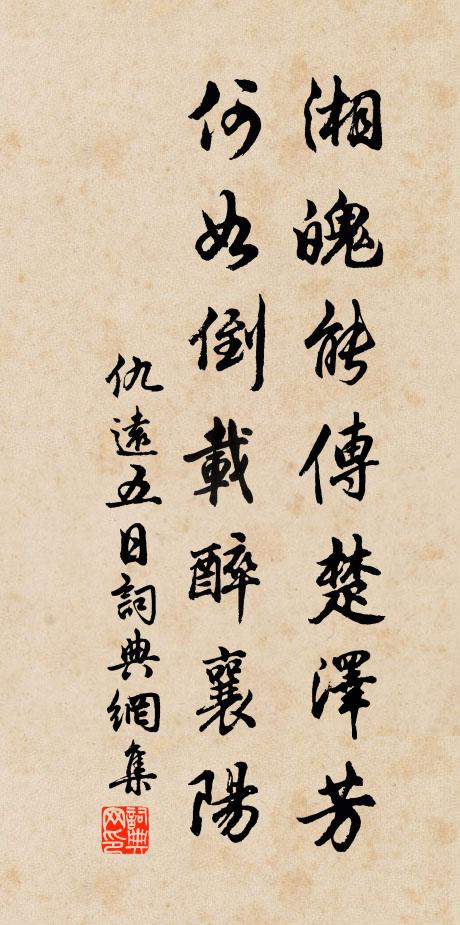 湘魄能傳楚澤芳
何如倒載醉襄陽
仇遠五日詞典網集
詞典
网印